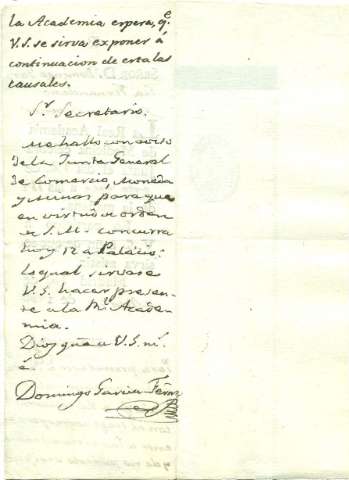 la Academia espera, q.e
V.S. se sirva exponer á
continuacion de esta las
causales.
S.r Secretario.
Me hallo con aviso
de la Junta General
de Comercio, Moneda
y Minas para que
en virtud de orden
de S. M. concurra
hoy 12 a Palacio:
lo qual sirvase
V.S. hacer presen-
te a la R.l Acade-
mia.
Dios gũe a V.S. m.s
a.s
Domingo Garcia Fern.z